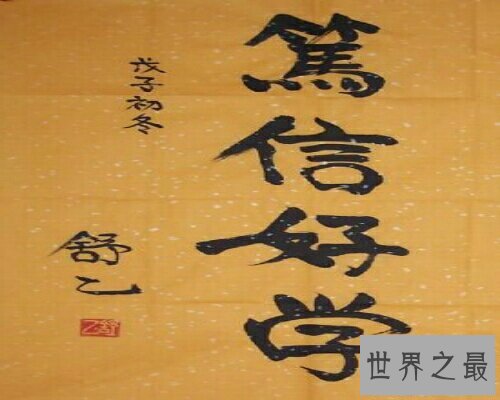 篤信好学
戊子初冬
舒乙
舒乙
世界之最